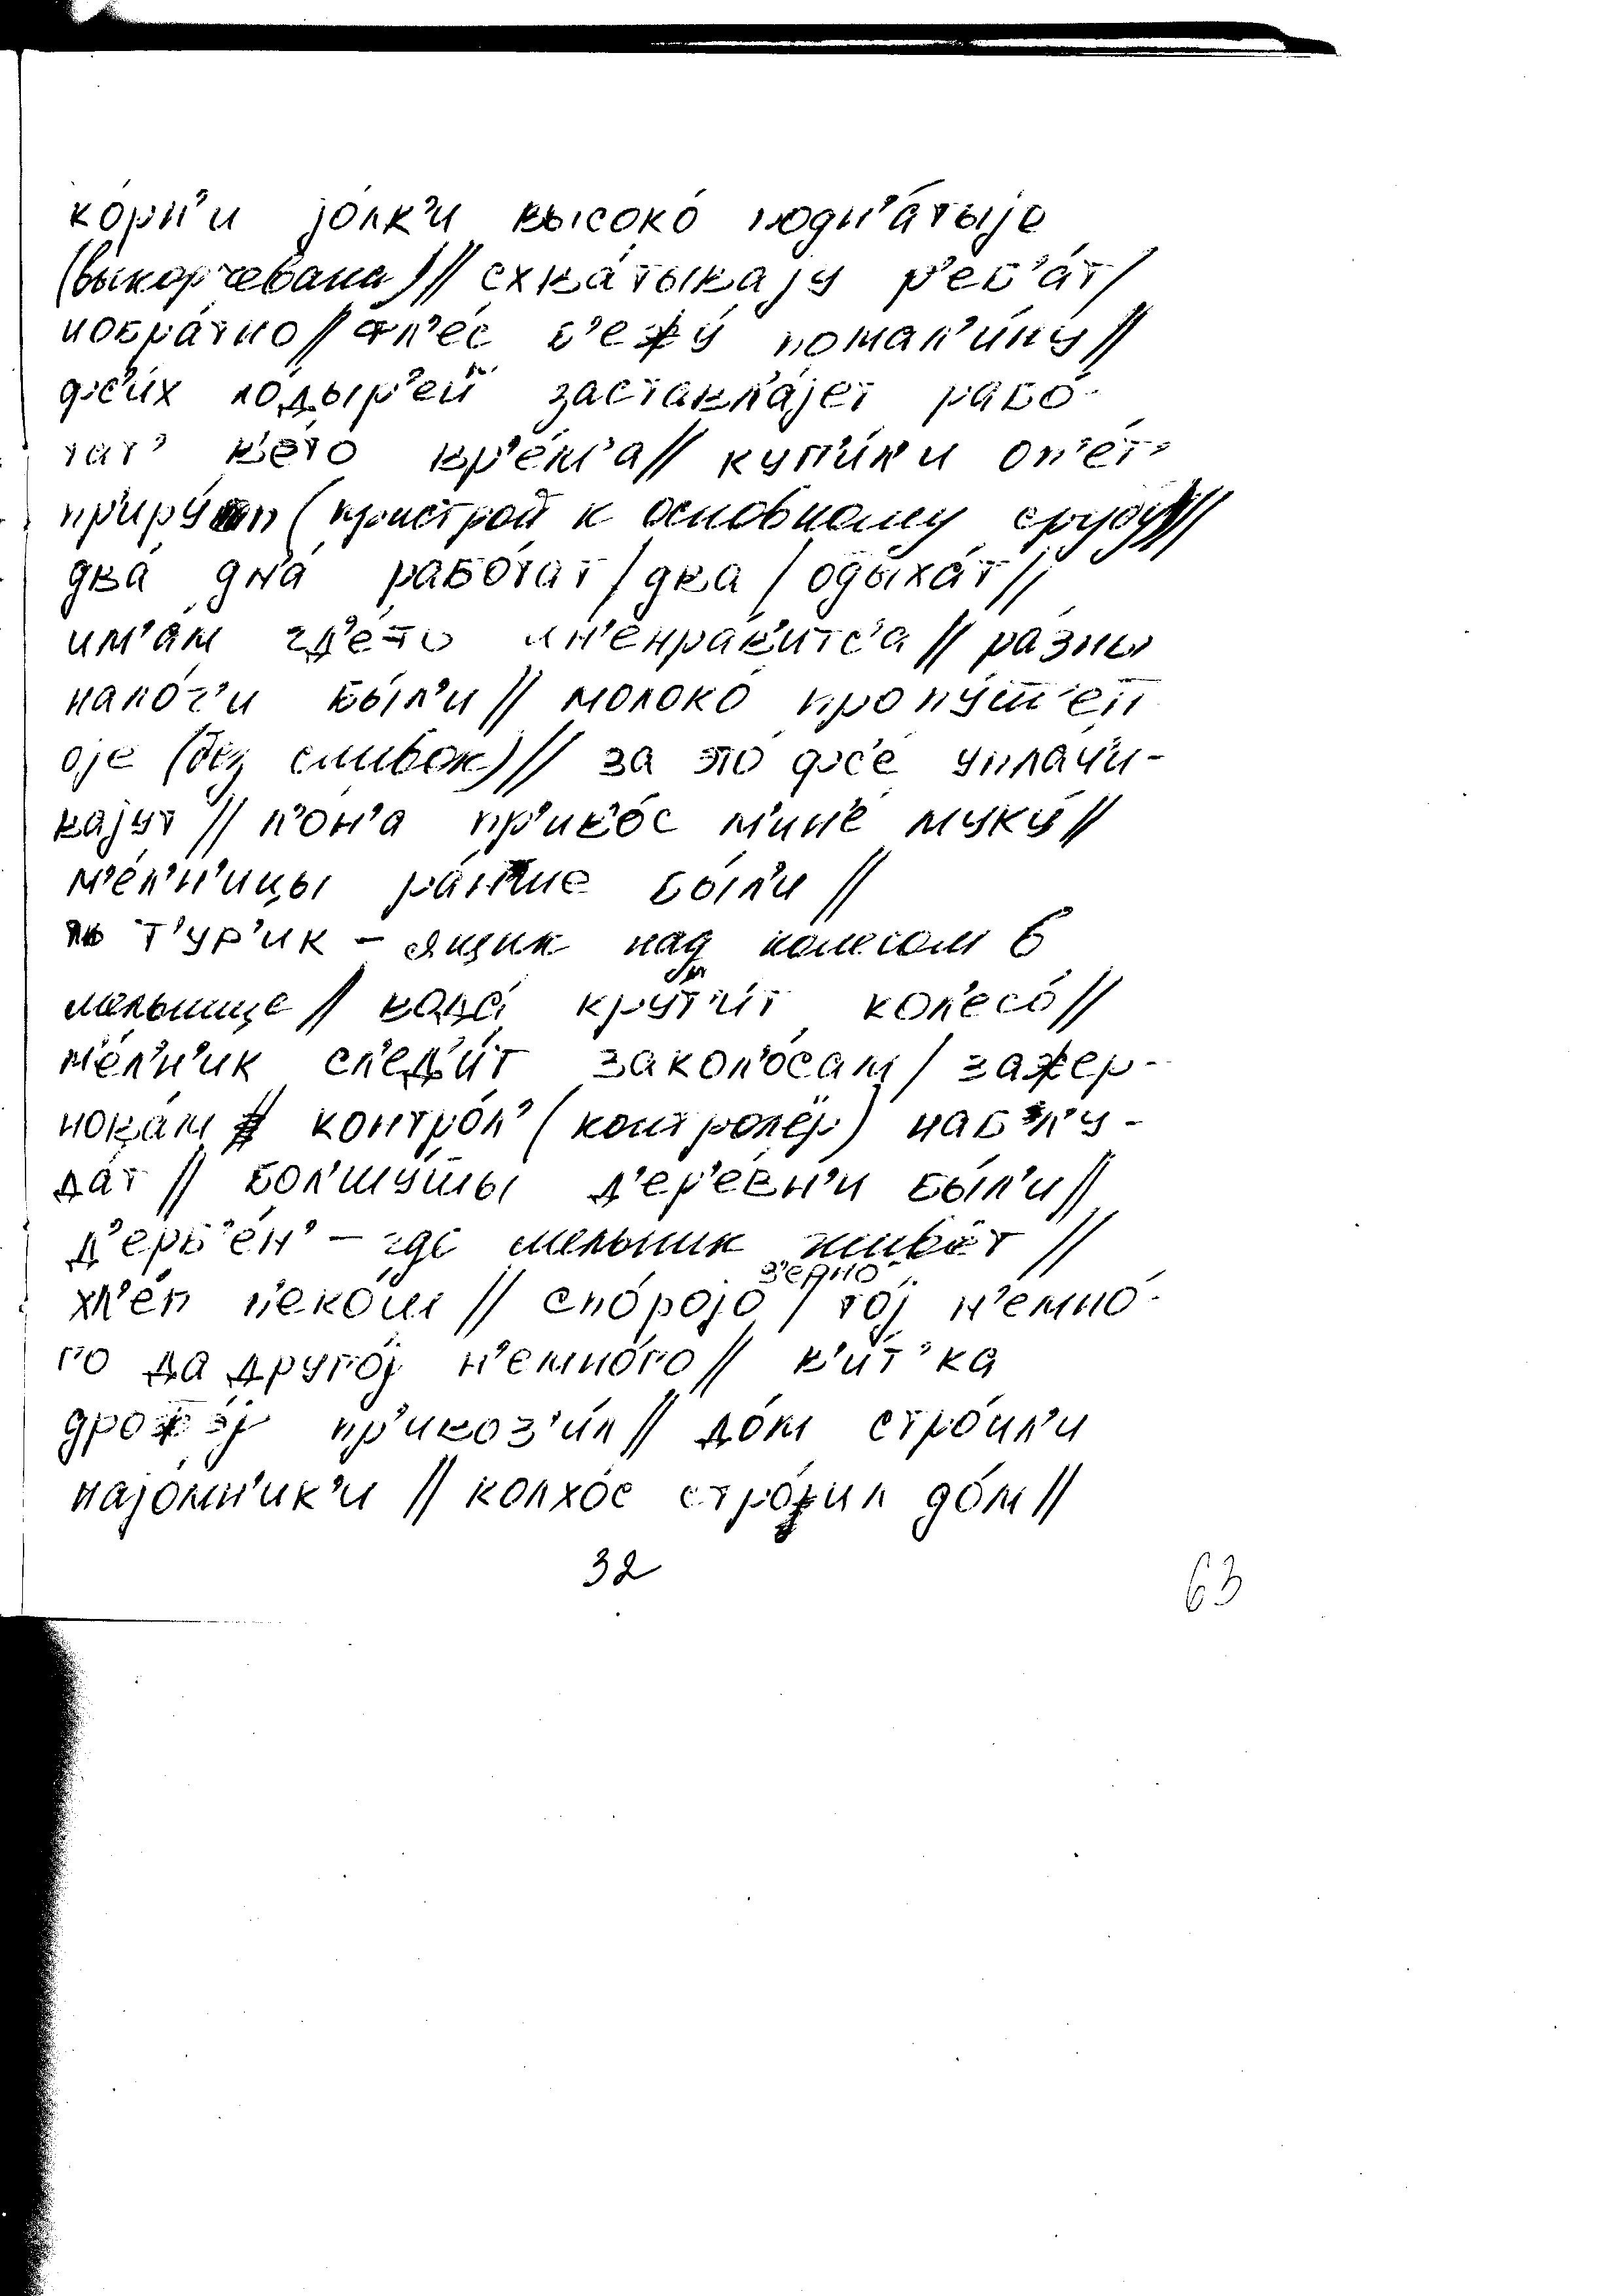 ко́рн'и јо́лк'и высоко́ подн'а́тыје
(выкорчевана) // схва́тываjу р'еб'а́т /
иобра́тно // фл'е́с б'ежу́ помал'и́ну //
фс'и́х ло́дыр'ей заставл'а́јет рабо́-
тат' в'е́то вр'е́м'а // купи́л'и оп'е́т'
приру́п (пристрой к основному срубу) //
два́ дн'а́ рабо́тат / два / одыха́т //
им'а́м гд'е́то ин'енра́в'итс'а // ра́зны
нало́г'и бы́л'и // молоко́ пропу́ш'ен
оје (без сливок) // за э́то фс'е́ упла́чи-
вајут // л'о́н'а пр'ив'о́с м'ин'е́ муку́ //
м'е́л'н'ицы ра́н'ше бы́л'и //
т'у́р'ик – ящик над колесом в
мельнице // вода́ крут'и́т кол'есо́ //
м'е́л'н'ик сл'ед'и́т закол'о́сам / зажер-
нова́м контро́л' (контролёр) набл'у-
да́т // бол'шу́шы д'ер'е́вн'и бы́л'и //
д'ерб'е́н' – где мельник живёт //
хл'е́п п'еко́ш // спо́ројо з'ерно́ / то́ј н'емно́-
го да друго́ј н'емно́го // в'и́т'ка
дрожэ́ј пр'ивоз'и́л // до́м стро́ил'и
најо́мн'ик'и // колхо́с стро́ил до́м //
32
63